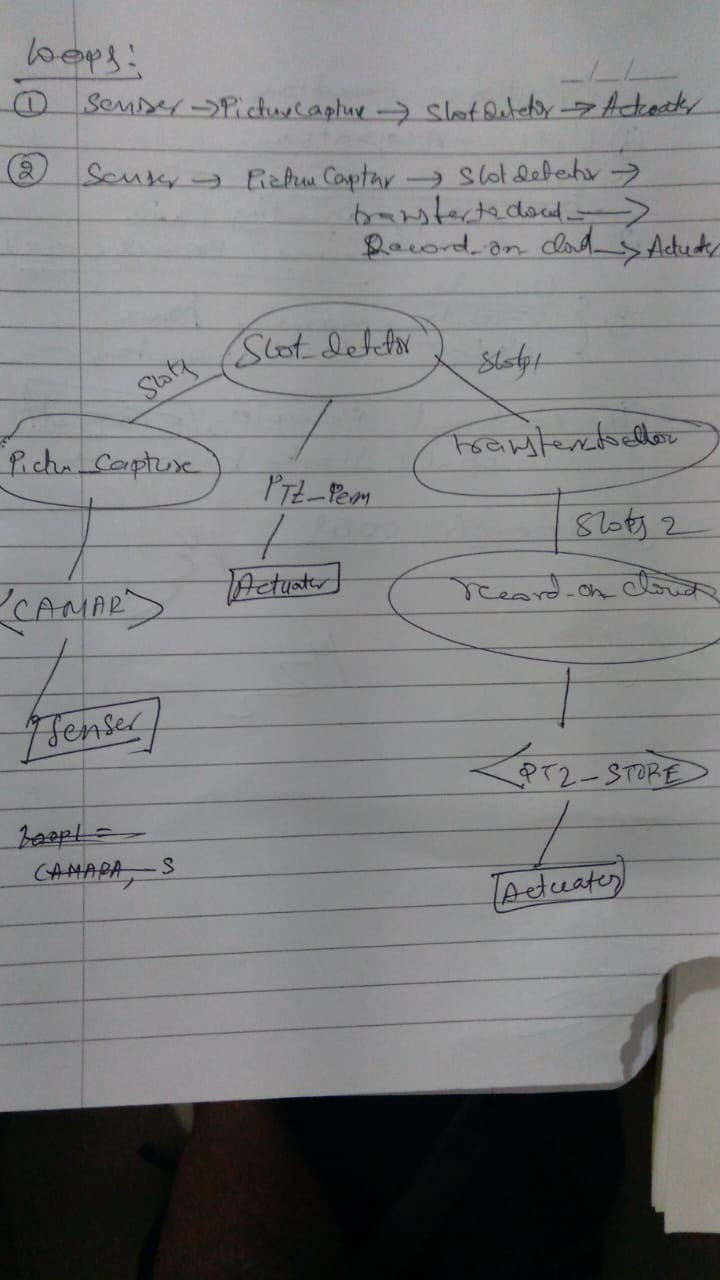 Loops:
_/_/__
① Senser → PictureCapture → Slot Detector → Actuator
② Senser → Picture Captur → Slot detector →
transfer_to cloud →
Record_on cloud → Actuator
Slot_detctor
Slots
Slots1
Pictu_Capture
transfer_to clou
PTZ_Perm
Slots 2
Actuater
<CAMAR>
record_on cloud
Senser
<PT2_STORE>
Loop1 =
CAMARA, S
Actuater